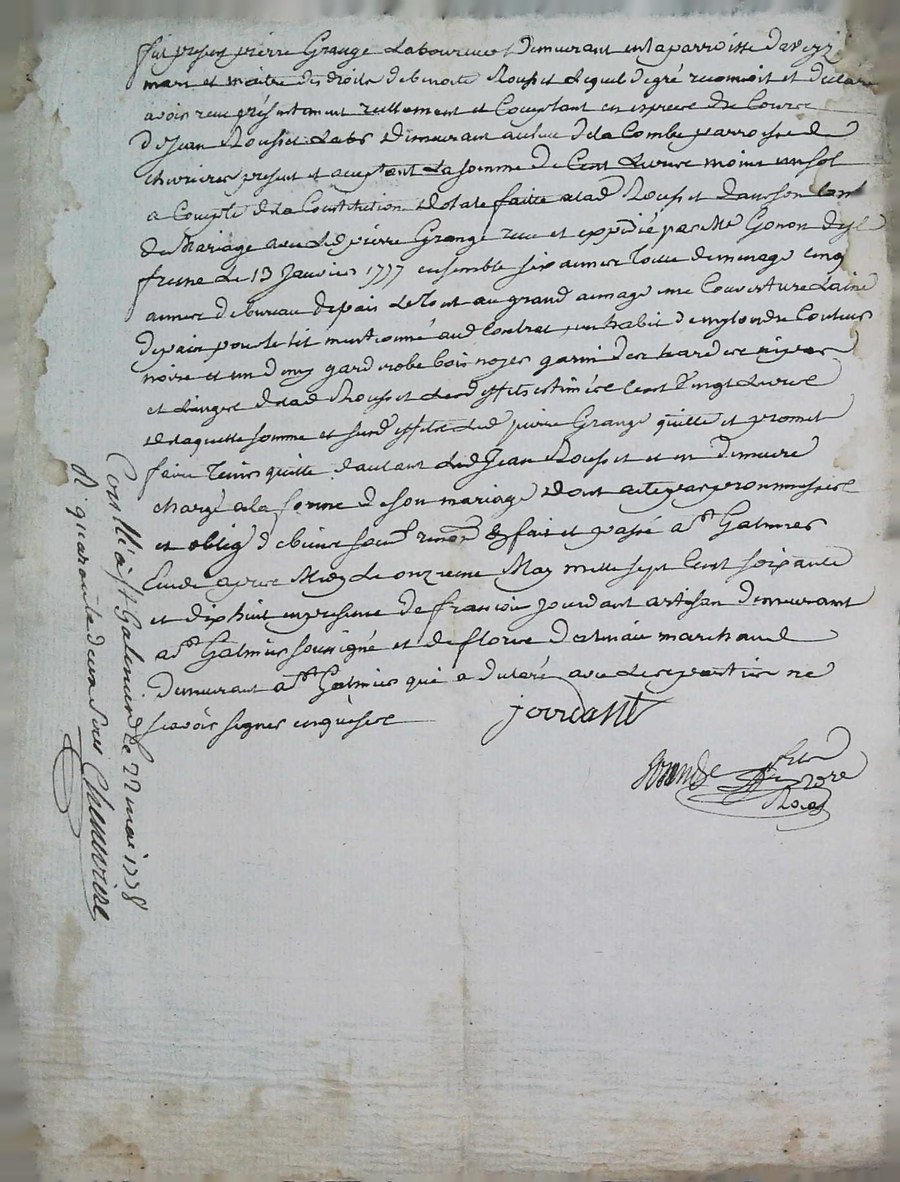 fut present pierre Grange Laboureur demeurant en la parroisse d'aveyzi
mary et maitre des droits de benoite Rousset lequel de gré reconnoit et declare
avoir receu présentement reellement et Comptant en espece de Cours
de Jean Rousset Labr demeurant au lieu de la Combe parroisse de
chevrieres present et aceptant La somme de Cent Livres moins un sol
a Compte de la Constitution dotale faitte a lad Rousset dans son Cont
de Mariage avec led pierre Grange receu et expedié par Me Gonon
le 13 Janvier 1777 ensemble six aunes toille de menage cinq
aunes de bureau depair le tout au grand aunage une Couverture Laine
depair pour le lit mentionné aud Contrat un habit de Couleur
noire et un demy garderobe bois noyer garni de ses hardes nipes
et Linges de lad Rousset Lesd effets estimés Cent vingt Livres
de laquelle somme et susd effets led pierre Grange quitte et promet
faire tenir quitte d'autant led Jean Rousset et en demeure
chargé a la forme de son mariage dont acte par promesses
et oblig de biens soum renon & fait et passé a St Galmier
Etude apres Midy le onzieme May mille sept Cent soixante
et dix huit en presence de francois jourdant artisan demeurant
a St Galmier soussigné et de fleurie marchand
demeurant a St Galmier qui a declaré avec les parties ne
scavoir signer enquis
jourdant
Conllé a St Galmier le 22 mai 1778
R quarante deux sous Chenevriere